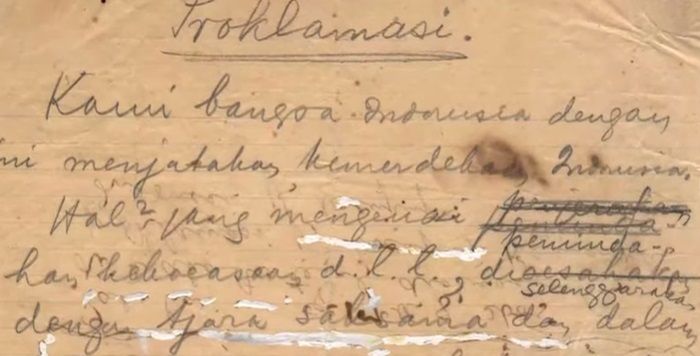 Proklamasi.
Kami bangsa Indonesia dengan
ni menjatakan kemerdekaan Indonesia.
Hal² jang mengenai penjerahan
peminda-
han kekoeasaan d.l.l., dioesahakan
selenggaraka
dengan tjara saksama dan dalam